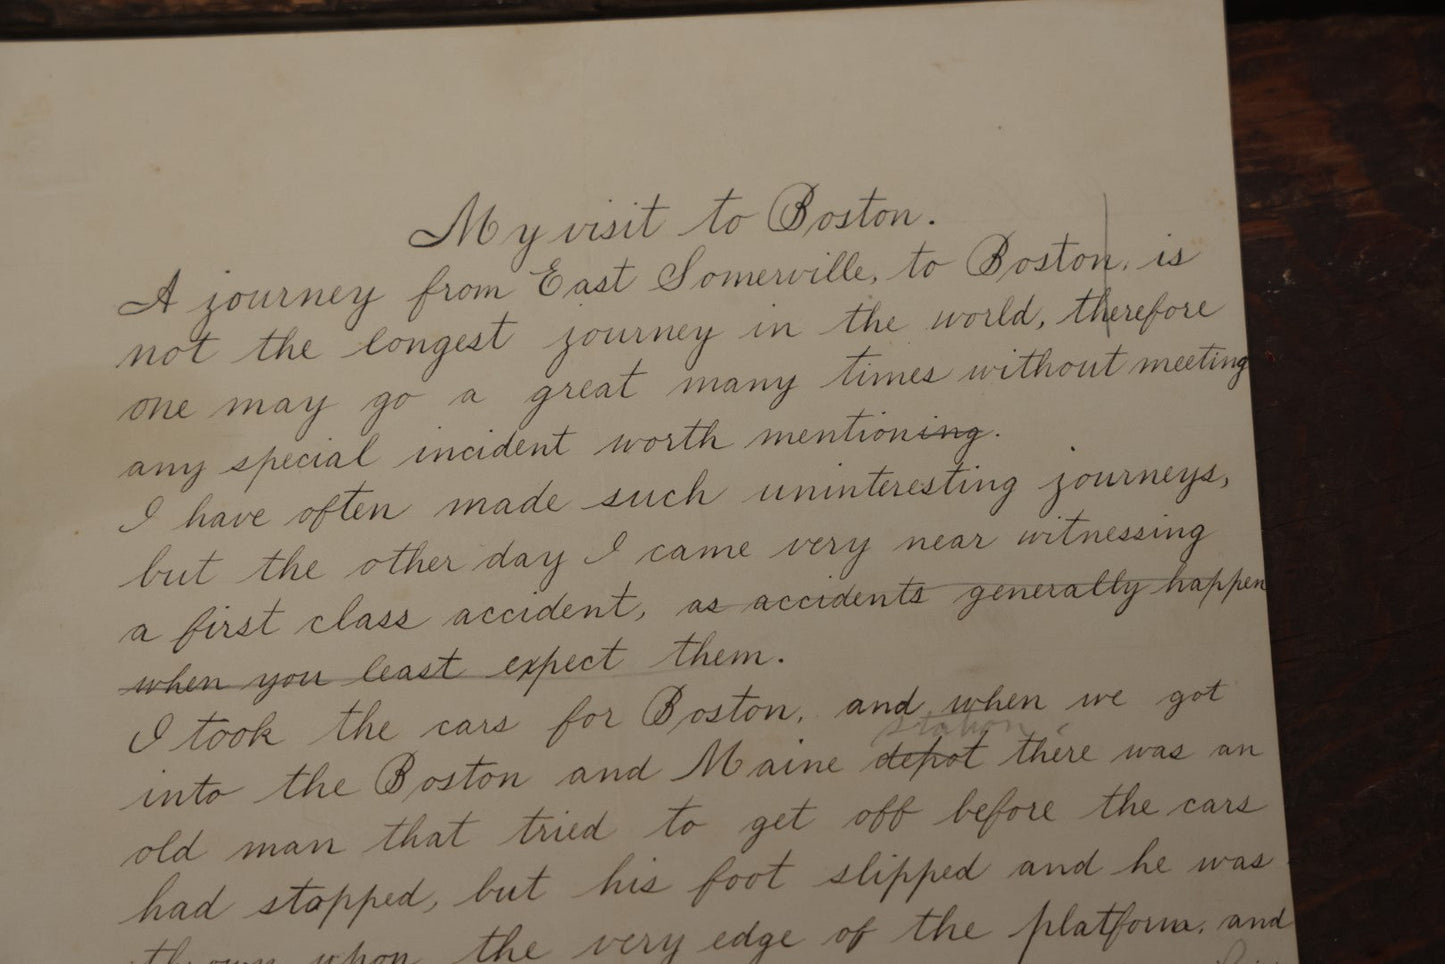 My visit to Boston.
A journey from East Somerville, to Boston, is
not the longest journey in the world, therefore
one may go a great many times without meeting
any special incident worth mentioning.
I have often made such uninteresting journeys,
but the other day I came very near witnessing
a first class accident, as accidents generally happen
when you least expect them.
I took the cars for Boston, and when we got
station
into the Boston and Maine depot there was an
old man that tried to get off before the cars
had stopped, but his foot slipped and he was
thrown upon the very edge of the platform, and